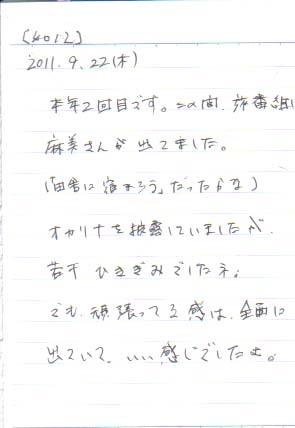 [#012]
2011.9.22(木)
本年2回目です。この間、旅番組に
麻美さんが出てました。
(「田舎に泊まろう」だったかな)
オカリナを披露していましたが、
若干 ひきぎみでしたネ。
でも、頑張ってる感は、全面に
出ていて、いい感じでしたよ。